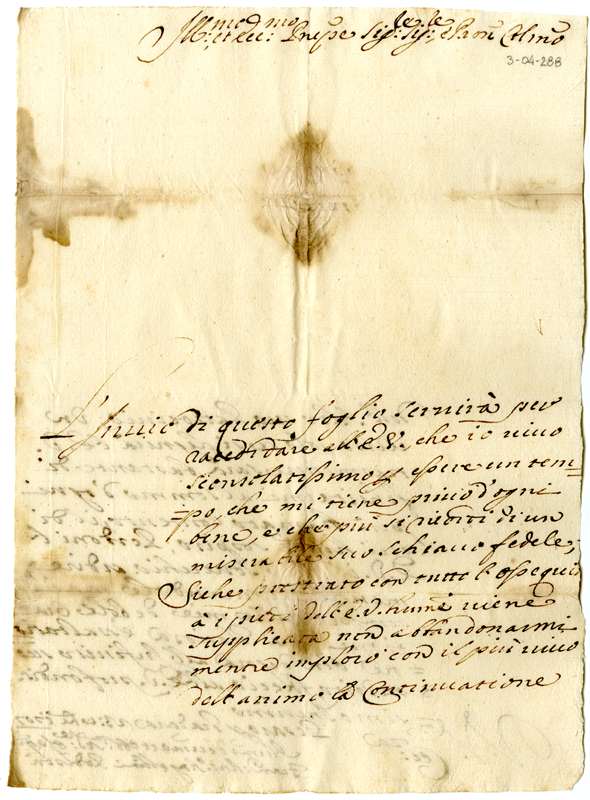 Ill:mo et ecc:mo Prnpe Sig:le Sig:le e Pron Colmo
3-04-288
L'Inuio di questo foglio seruirà per
racordare all'e.V., che io viuo
sconsolatissimo p esere un tem=
=po, che mi tiene priuo d'ogni
bene, e che più si ricordi di un
misera bile suo schiauo fedele;
Siche prostrato con tutto l'ossequio
à i piedi dell'e.V. uiene
supplicata non abbandonarmi
mentre imploro con il più uiuo
dell'animo la Continuatione